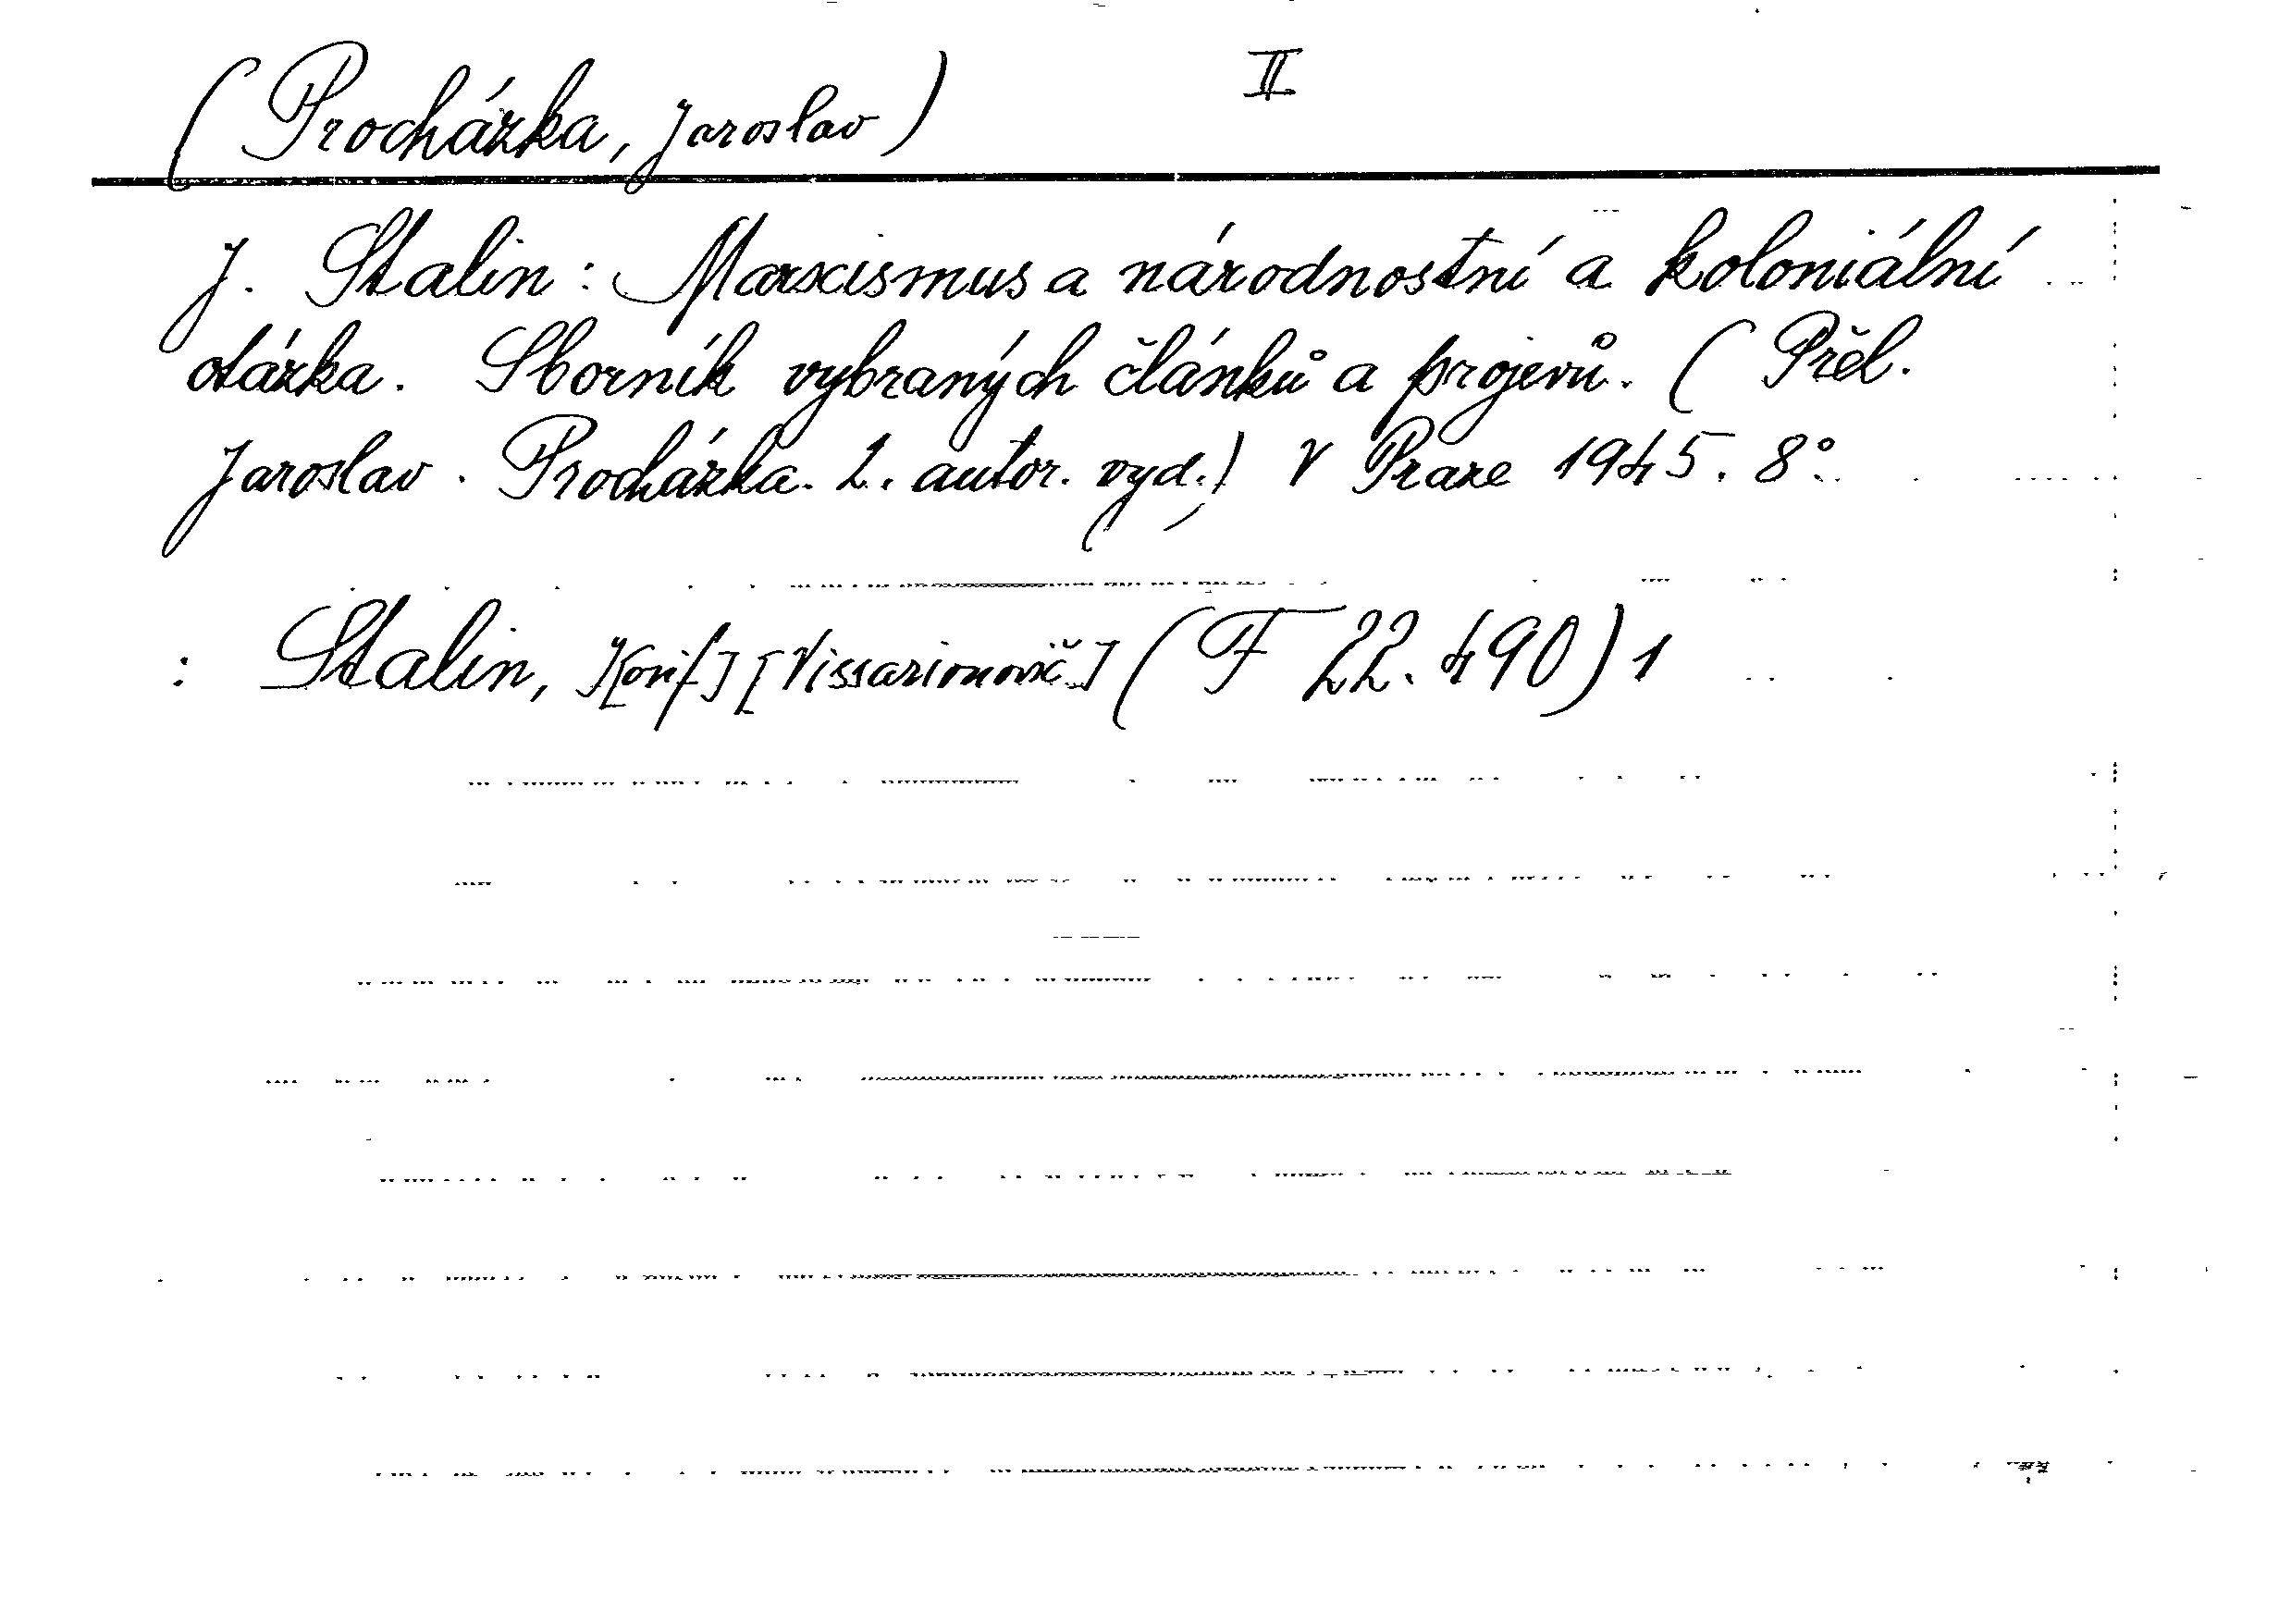 (Procházka, Jaroslav) II
J. Stalin: Marxismus a národnostní a koloniální
otázka. Sborník vybraných článků a projevů. (Přel.
Jaroslav Procházka. 2. autor. vyd.) V Praze 1945. 8°.
: Stalin, J[osif] [Vissarionovič] (F 22.490) 1